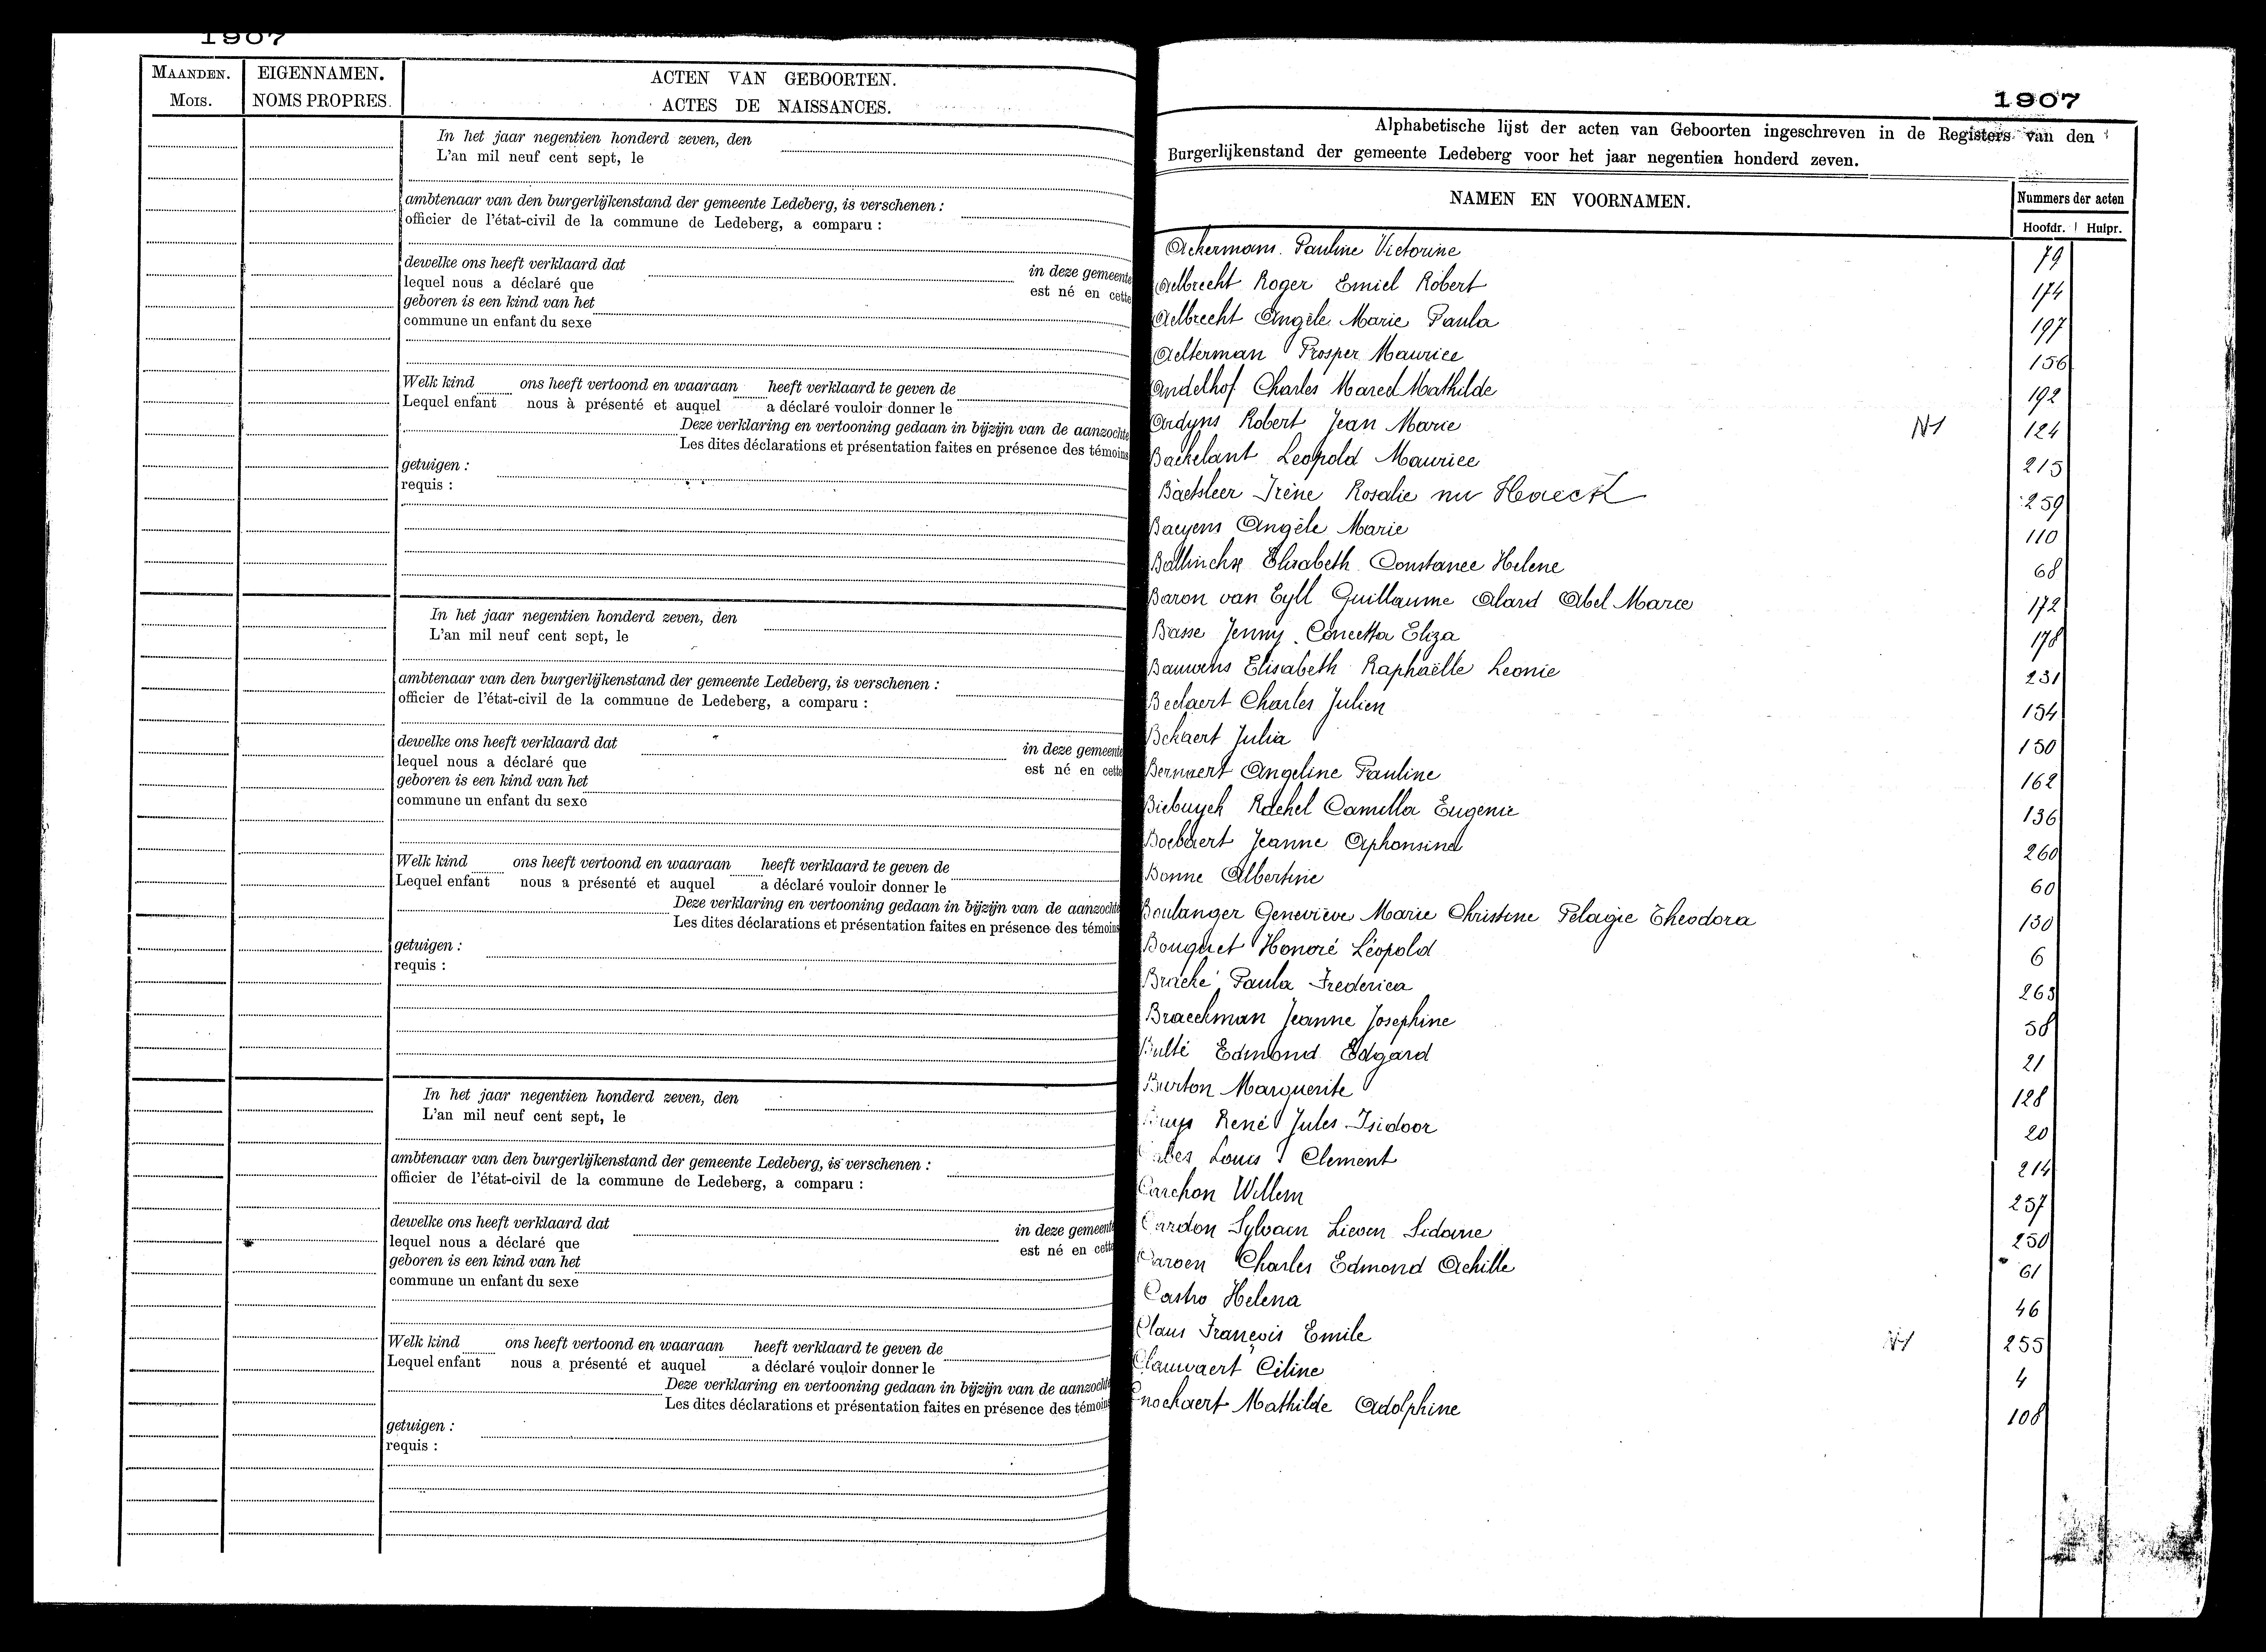 1907
MAANDEN.
MOIS.
EIGENNAMEN.
NOMS PROPRES.
ACTEN VAN GEBOORTEN.
ACTES DE NAISSANCES.
In het jaar negentien honderd zeven, den
L'an mil neuf cent sept, le
ambtenaar van den burgerlijkenstand der gemeente Ledeberg, is verschenen :
officier de l'état-civil de la commune de Ledeberg, a comparu :
dewelke ons heeft verklaard dat in deze gemeente
lequel nous a déclaré que est né en cette
geboren is een kind van het
commune un enfant du sexe
Welk kind ons heeft vertoond en waaraan heeft verklaard te geven de
Lequel enfant nous à présenté et auquel a déclaré vouloir donner le
Deze verklaring en vertooning gedaan in bijzijn van de aanzochte
Les dites déclarations et présentation faites en présence des témoins
getuigen :
requis :
In het jaar negentien honderd zeven, den
L'an mil neuf cent sept, le
ambtenaar van den burgerlijkenstand der gemeente Ledeberg, is verschenen :
officier de l'état-civil de la commune de Ledeberg, a comparu :
dewelke ons heeft verklaard dat in deze gemeente
lequel nous a déclaré que est né en cette
geboren is een kind van het
commune un enfant du sexe
Welk kind ons heeft vertoond en waaraan heeft verklaard te geven de
Lequel enfant nous a présenté et auquel a déclaré vouloir donner le
Deze verklaring en vertooning gedaan in bijzijn van de aanzochte
Les dites déclarations et présentation faites en présence des témoins
getuigen :
requis :
In het jaar negentien honderd zeven, den
L'an mil neuf cent sept, le
ambtenaar van den burgerlijkenstand der gemeente Ledeberg, is verschenen :
officier de l'état-civil de la commune de Ledeberg, a comparu :
dewelke ons heeft verklaard dat in deze gemeente
lequel nous a déclaré que est né en cette
geboren is een kind van het
commune un enfant du sexe
Welk kind ons heeft vertoond en waaraan heeft verklaard te geven de
Lequel enfant nous a présenté et auquel a déclaré vouloir donner le
Deze verklaring en vertooning gedaan in bijzijn van de aanzochte
Les dites déclarations et présentation faites en présence des témoins
getuigen :
requis :
1907
Alphabetische lijst der acten van Geboorten ingeschreven in de Registers van den
Burgerlijkenstand der gemeente Ledeberg voor het jaar negentien honderd zeven.
NAMEN EN VOORNAMEN.
Nummers der acten
Hoofdr. Hulpr.
Ackermans Pauline Victorine 79
Aelbrecht Roger Emiel Robert 174
Aelbrecht Angèle Marie Paula 197
Aelterman Prosper Maurice 156
Andelhof Charles Marcel Mathilde 192
Ardyns Robert Jean Marie N1 124
Backelant Leopold Maurice 215
Baetsleer Irène Rosalie nu Haeck 259
Baeyens Angèle Marie 110
Ballinckx Elisabeth Constance Helene 68
Baron van Eyll Guillaume Alard Abel Marie 172
Basse Jenny Concetta Eliza 178
Bauwens Elisabeth Raphaëlle Leonie 231
Beelaert Charles Julien 154
Bekaert Julia 150
Bernaert Angeline Pauline 162
Biebuyck Rachel Camilla Eugenie 136
Boebaert Jeanne Alphonsina 260
Bonne Albertine 60
Boulanger Geneviève Marie Christine Pelagie Theodora 130
Bouquet Honoré Léopold 6
Paula Frederica 263
Braeckman Jeanne Josephine 58
Bulté Edmond Edgard 21
Burton Marguerite 128
René Jules Isidoor 20
Louis Clement 214
Carchon Willem 257
Cardon Sylvain Lieven Sidonie 250
Charles Edmond Achille 61
Castro Helena 46
Claus François Emile 255
Clauwaert Céline 4
Cnockaert Mathilde Adolphine 108